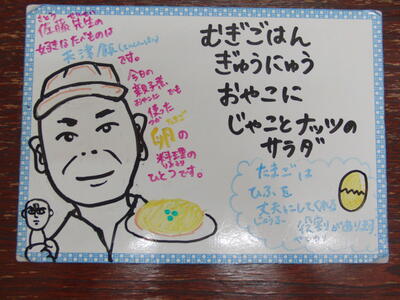 さとう せんせい
佐藤先生の
好きなたべものは
天津飯(てんしんはん)
です。
今日の
親子煮にも
おやこに
使った
つか たまご
卵の
料理の
りょうり
ひとつです。
むぎごはん
ぎゅうにゅう
おやこに
じゃことナッツの
サラダ
たまごは
ひふを
丈夫にしてくれる
じょうぶ
役割があります
やくわり